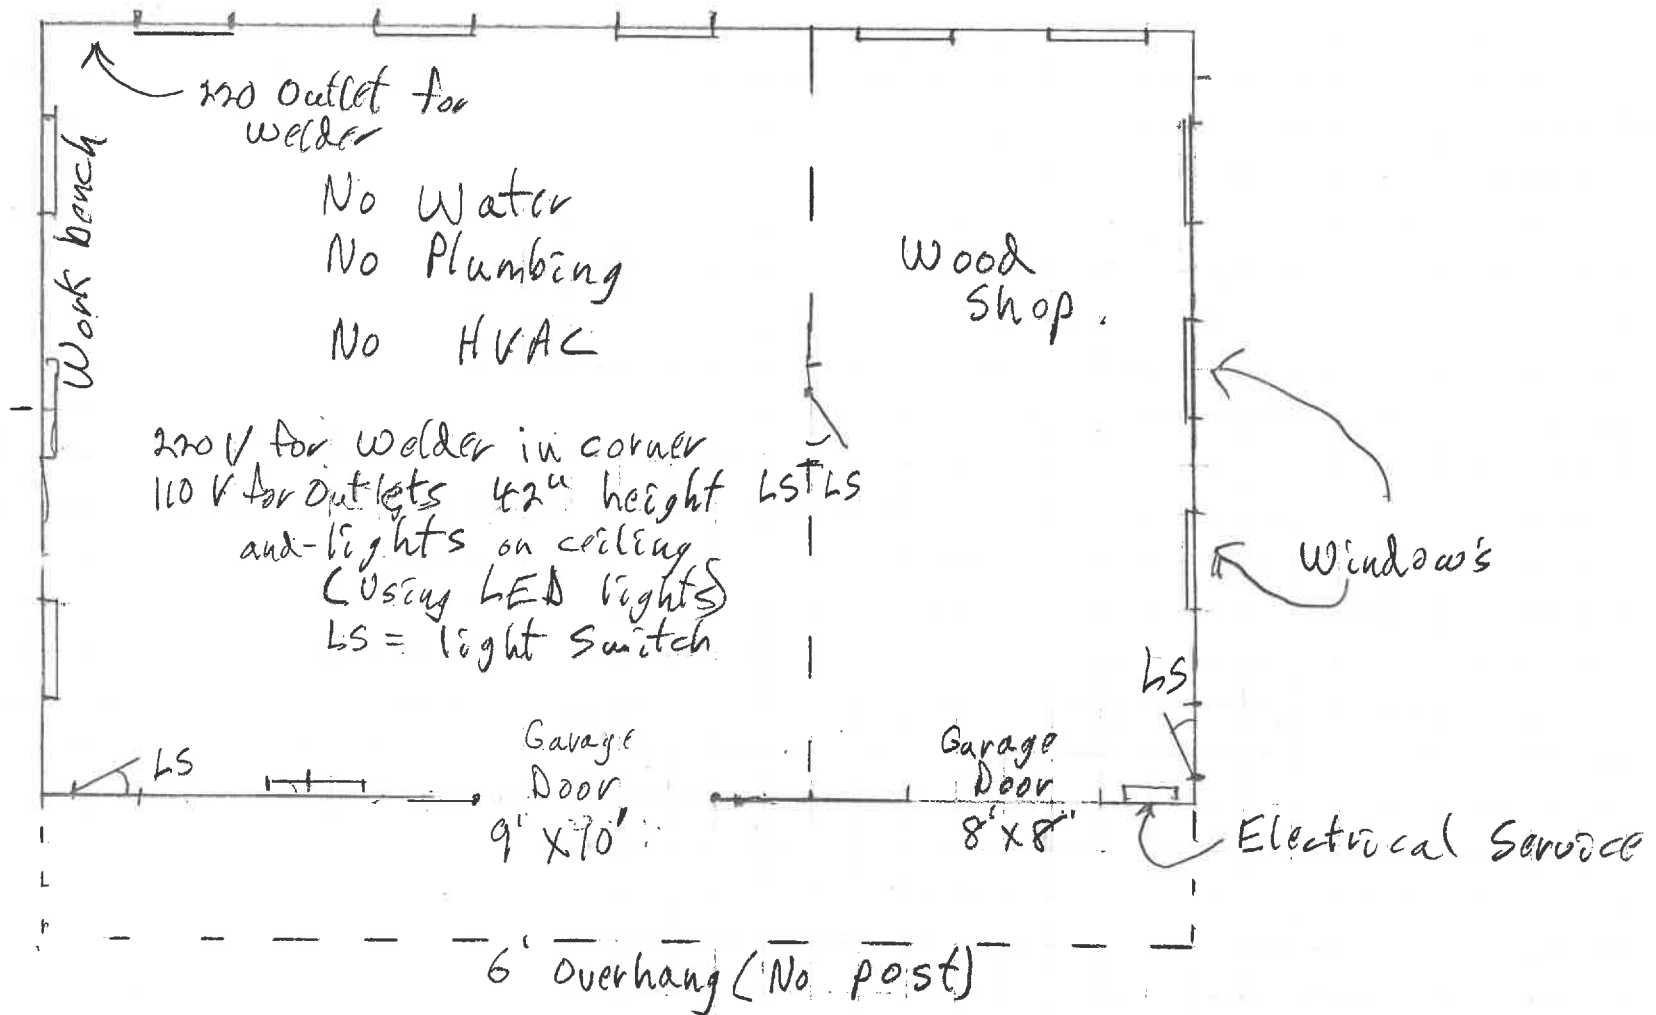 220 Outlet for
welder
Work bench
No Water
No Plumbing
No HVAC
Wood
Shop.
220 V for welder in corner
110 V for outlets 42" height
and-lights on ceiling
(Using LED lights)
LS = light Switch
LS LS
Window's
LS
LS
Garage
Door
9' X 10'
Garage
Door
8' X 8'
Electrical Service
6' Overhang (No post)